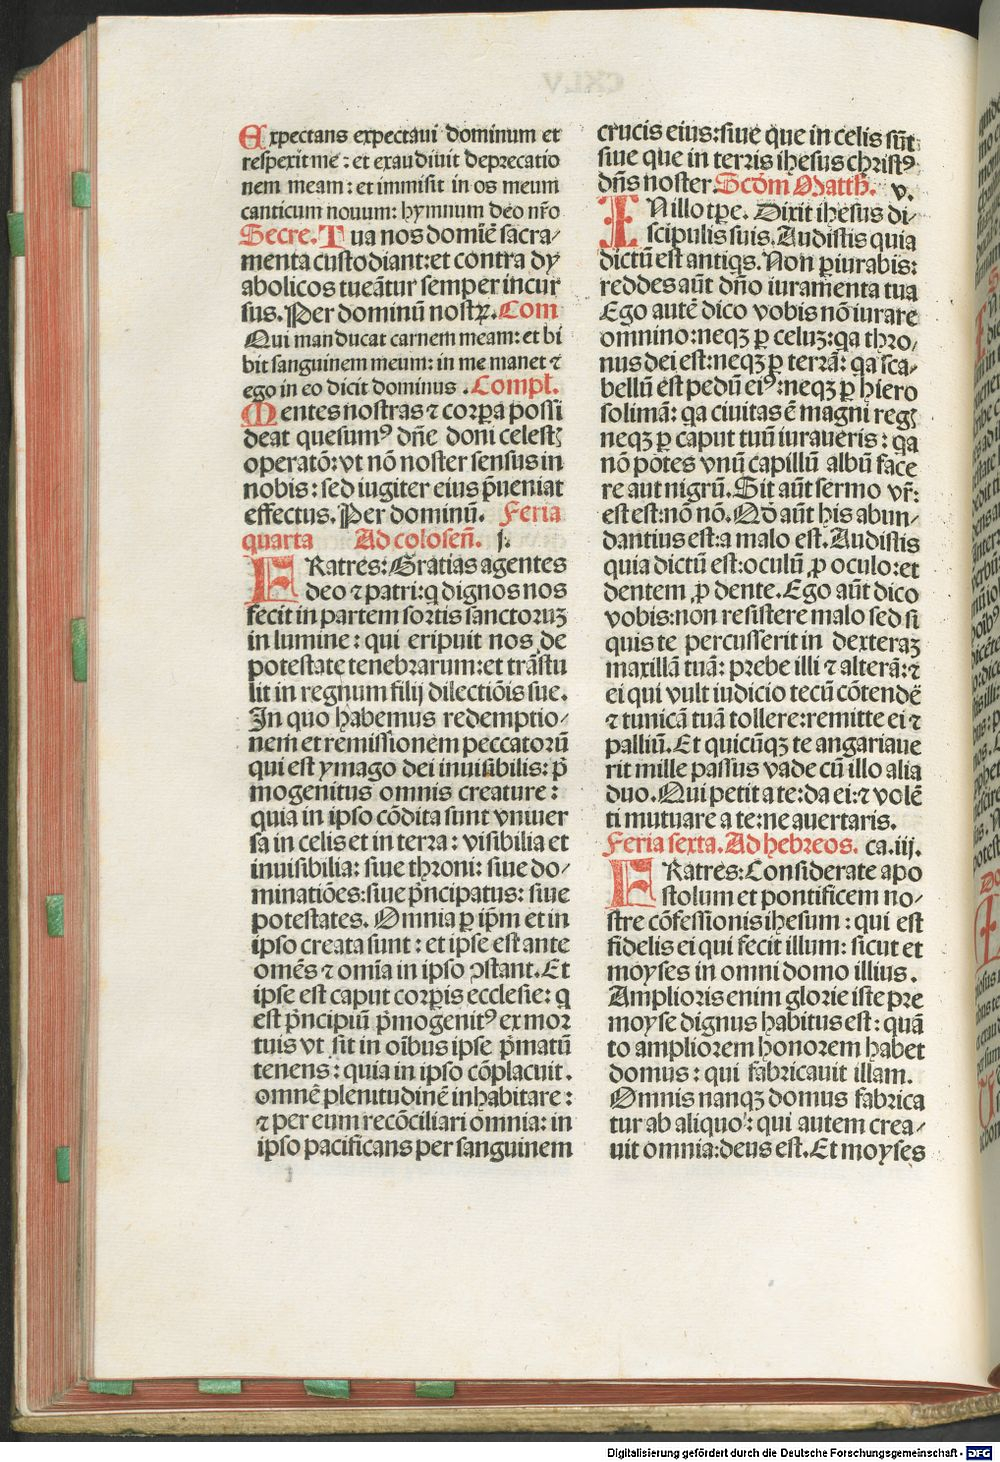 Expectans expectaui dominum et
respexit me : et exaudiuit deprecatio
nem meam : et immisit in os meum
canticum nouum: hymnum deo nr̃o
Secre. Tua nos domiẽ sacra⸗
menta custodiant: et contra dy
abolicos tueãtur semper incur
sus. Per dominũ nostꝝ. Com
Qui manducat carnem meam: et bi
bit sanguinem meum: in me manet ⁊
ego in eo dicit dominus . Compl̃.
Mentes nostras ⁊ corꝑa possi
deat quesumꝰ dñe doni celestꝭ
operatõ: vt nõ noster sensus in
nobis : sed iugiter eius p̃ueniat
effectus. Per dominũ. Feria
quarta Ad colosen̄. j.
FRatres: Gratias agentes
deo ⁊ patri: q̇ dignos nos
fecit in partem sortis sanctoruꝫ
in lumine : qui eripuit nos de
potestate tenebrarum: et trãstu
lit in regnum filij dilectiõis sue.
In quo habemus redemptio⸗
nem et remissionem peccatorũ
qui est ymago dei inuisibilis: p̃
mogenitus omnis creature :
quia in ipso cõdita sunt vniuer
sa in celis et in terra : visibilia et
inuisibilia: siue throni: siue do⸗
minatiões: siue p̃ncipatus: siue
potestates. Omnia ꝑ ip̃m et in
ipso creata sunt : et ipse est ante
omẽs ⁊ omĩa in ipso ꝯstant. Et
ipse est caput corꝑis ecclesie: q
est p̃ncipiũ p̃mogenitꝰ ex mor
tuis vt sit in oĩbus ipse p̃matũ
tenens : quia in ipso cõplacuit.
omnẽ plenitudinẽ inhabitare :
⁊ per eum recõciliari omnia: in
ipso pacificans per sanguinem
crucis eius: siue que in celis sũt
siue que in terris ihesus christꝰ
dñs noster. Scd̃m Matth. v.
IN illo tp̃e. Dixit ihesus di⸗
scipulis suis. Audistis quia
dictũ est antiqs. Non ꝑiurabis:
reddes aũt dño iuramenta tua
Ego autẽ dico vobis nõ iurare
omnino: neqꝫ ꝑ celuꝫ: qa thro⸗
nus dei est: neqꝫ ꝑ terrã: qa sca⸗
bellũ est pedũ eiꝰ: neqꝫ ꝑ hiero
solimã: qa ciuitas ẽ magni regꝭ
neqꝫ ꝑ caput tuũ iuraueris : qa
nõ potes vnũ capillũ albũ face
re aut nigrũ. Sit aũt sermo vr̃:
est est: nõ nõ. Qd̃ aũt his abun⸗
dantius est: a malo est. Audistis
quia dictũ est: oculũ ꝓ oculo: et
dentem ꝓ dente. Ego aũt dico
vobis: non resistere malo sed si
quis te percusserit in dexteraꝫ
maxillã tuã: prebe illi ⁊ alterã: ⁊
ei qui vult iudicio tecũ cõtendẽ
⁊ tunicã tuã tollere: remitte ei ⁊
palliũ. Et quicũqꝫ te angariaue
rit mille passus vade cũ illo alia
duo. Qui petit a te: da ei: ⁊ volẽ
ti mutuare a te: ne auertaris.
Feria sexta. Ad hebreos. ca. iij.
FRatres: Considerate apo
stolum et pontificem no⸗
stre cõfessionis ihesum : qui est
fidelis ei qui fecit illum: sicut et
moyses in omni domo illius .
Amplioris enim glorie iste pre
moyse dignus habitus est : quã
to ampliorem honorem habet
domus : qui fabricauit illam.
Omnis nanqꝫ domus fabrica
tur ab aliquo : qui autem crea⸗
uit omnia: deus est. Et moyses
Digitalisierung gefördert durch die Deutsche Forschungsgemeinschaft - DFG